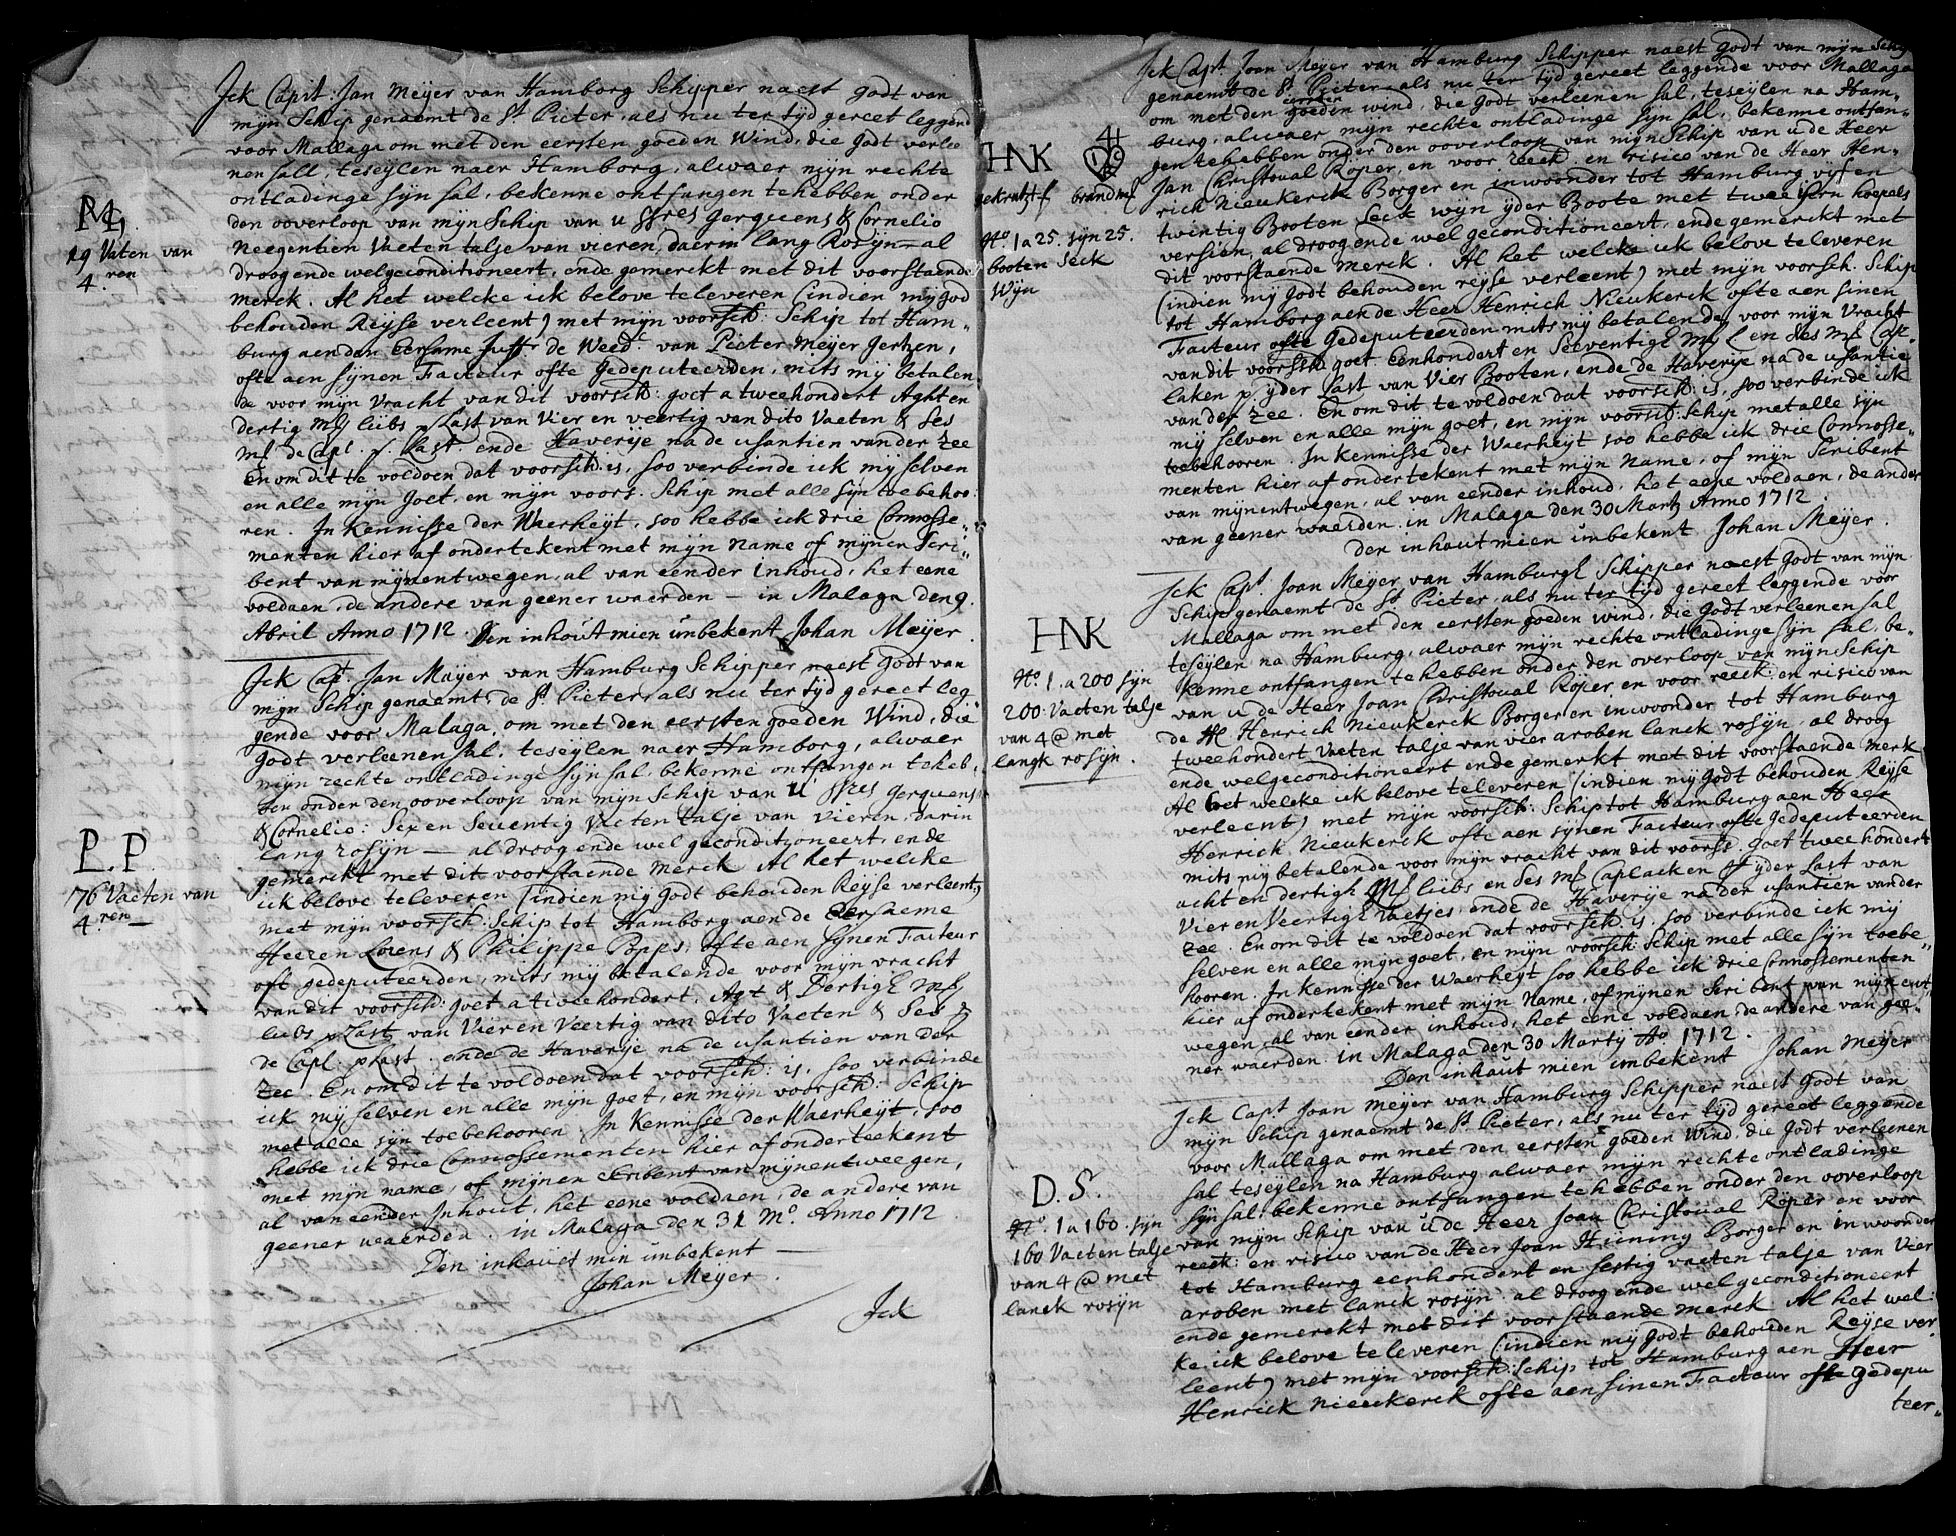 Ick Capit: Jan Meijer van Hamborg Schipper naest godt van
mijn Schip genaemt de St Pieter, als nu ter tijd gereet leggend
voor Mallaga om met den eersten goeden Wind, die godt verlee
nen sall, teseijlen naer Hamborg, alwaer mijn rechte
ontladinge sijn sal, bekenne ontfangen te hebben onder
den ooverloop van mijn Schip van u Sres Gerquens & Cornelio
Neegentien Vaeten talje van vieren, daerin lang Rosijn — al
droog ende welgeconditioneert, ende gemerckt met dit voorstaende
merck. Al het welcke ick belove te leveren (indien mij god
behouden Reijse verleent) met mijn voorsch: Schip tot Ham„
burg aen den Eersame Juffr de Weed: van Pieter Meijer Gertzen,
ofte aen sijnen Facteur ofte gedeputeerden, mits mij betalen
de voor mijn Vracht van dit voorsch: goet a tweehondert Aght en
dertig M͠ lubs p Last van Vier en veertig van dito Vaeten & ses
M͠ de Capl. p. Last. ende Haverije na de usantien van der Zee
En om dit te voldoen dat voorsch: is, soo verbinde ick mij selven
en alle mijn goet, en mijn voors. Schip met alle sijn toebehoo:
ren. In Kennisse der Waerheijt, soo hebbe ick drie Connosse„
menten hier af ondertekent met mijn Name of mijnen Scri„
bent van mijnentwegen, al van eender Inhoud, het eene
voldaen, de andere van geener waerden — in Malaga den 9.
Abril Anno 1712. Den inhout mien unbekent Johan Meijer.
M G
19 Vaten van
4.ren
Ick Capt Jan Meijer van Hamburg Schipper naest Godt van
mijn Schip genaemt, de St Pieter, als nu ter tijd gereet leg
gende voor Malaga, om met den eersten goeden Wind, die
Godt verleenen sal, teseijlen naer Hamborg, alwaer
mijn rechte ontladinge sijn sal, bekenne ontfangen te heb„
ben onder den ooverloop van mijn Schip van U Sres Gerquens
& Cornelio: Sex en Seventig Vaeten talje van Vieren, darin
lang rosijn — al droog ende wel geconditioneert, ende
gemerckt met dit voorstaende Merck Al het welcke
ick belove te leveren (indien mij Godt behouden Reijse verleent)
met mijn voorsch: Schip tot Hamborg aen de Eersaeme
Heeren Lorens & Philippe Popps, ofte aen sijnen Facteur
oft gedeputeerden, mits mij betalende voor mijn vracht
van dit voorsch: goet a tweehondert, Agt & Dertig M͠
lubs p Last van Vier en Veertig van dito Vaeten & Ses
de Capl. p Last. ende de Haverije na de usantien van der
Zee. En om dit te voldoen dat voorsch: is, soo verbinde
ick mij selven en alle mijn goet, en mijn voorsch: Schip
met alle sijn toebehooren In Kennisse der Waerheijt, soo
hebbe ick drie Connossementen hier af onderteekent
met mijn name, of mijnen Scribent van mijnentweegen,
al van eender Inhout, het eene voldaen, de andere van
geener waerden. in Malaga den 31 Mo. Anno 1712.
Den inhout mien unbekent —
Johan Meijer.
Ick
P. P.
76 Vaeten van
4.ren —
Ick Capt. Joan Meyer van Hamburg Schipper naest godt van mijn Schip
genaemt de St. Pieter als nu ter tijd gereet leggende voor Mallaga
om met den eersten goeden wind, die godt verleenen sal, teseijlen na Ham„
burg, alwaer mijn rechte ontladinge sijn sal, bekenne ontfan„
gen te hebben onder den ooverloop van mijn Schip van u de Heer
Jan Christoual Röper, en voor reeck: en risico van de Heer Hen„
rich Nieukerck Borger en inwoonder tot Hamburg vijf en
twintig Booten Seck wijn ijder Boote met twee Ijsern hoepels
versien, al droog ende wel geconditioneert, ende gemerckt met
dit voorstaende merck. Al het welcke ick belove te leveren
(indien mij godt behouden reijse verleent) met mijn voorsch. Schip
tot Hamborg aen de Heer Henrich Nieukerck ofte aen sinen
Facteur ofte Gedeputeerden mits mij betalende voor mijn Vracht
van dit voorsch: goet eenhondert en Seeventig M͠ l en ses M͠ Cap„
laken p. ijder Last van Vier Booten, ende de Haverije na de usantie
van der Zee. En om dit te voldoen dat voorsch: is, soo verbinde ick
mij selven en alle mijn goet, en mijn voorsch: Schip met alle sijn
toebehooren. In Kennisse der Waerheijt soo hebbe ick drie Connosse„
menten hier af ondertekent met mijn Name, of mijn Scribent
van mijnentwegen, al van eender inhoud, het eene voldaen, de ander
van geener waerden. in Malaga den 30 Martz Anno 1712.
Den inhout mien unbekent Johan Meijer.
HNK
gekratzt brandm
No. 1 a 25. sijn 25.
booten Seck
Wijn
Ick Capt. Joan Meijer van Hamburg Schipper naest Godt van mijn
Schip genaemt de St Pieter, als nu ter tijd gereet leggende voor
Mallaga om met den eersten goeden wind, die Godt verleenen sal
teseijlen na Hamburg, alwaer mijn rechte ontladinge sijn sal, be„
kenne ontfangen te hebben onder den overloop van mijn Schip
van u de Heer Joan Christoual Röper en voor reeck: en risico van
de Hl Henrich Nieukerck Borger en inwoonder tot Hamburg
tweehondert Vaeten talje van vier aroben lanck rosijn, al droog
ende welgeconditioneert ende gemerkt met dit voorstaende Merk
Al het welcke ick belove te leveren (indien mij Godt behouden Reijse
verleent) met mijn voorsch: Schip tot Hamburg aen Heer
Henrick Nieukerck ofte aen sijnen Facteur ofte Gedeputeerden
mits mij betalende voor mijn vracht van dit voorss. goet tweehondert
acht en dertigh M͠ lubs en Ses M͠ Caplacken p ijder Last van
Vier en Veertigh Vaetjes, ende de Haverije na der usantien van der
Zee. En om dit te voldoen dat voorsch: is, soo verbinde ick mij
selven en alle mijn goet, en mijn voorsch: Schip met alle sijn toebe„
hooren. In Kennisse der Waerheijt soo hebbe ick drie Connossementen
hier af ondertekent met mijn Name, of mijnen Scribent van mijnent„
wegen, al van eender inhoud, het eene voldaen, de andere van gee„
ner waerden. In Malaga den 30 Martij Ao 1712.
Den inhaut mien unbekent Johan Meijer
HNK
No. 1. a 200 sijn
200: Vaeten talje
van 4 @ met
langk rosijn.
Ick Capt Joan Meijer van Hamburg Schipper naest Godt van
mijn Schip genaemt de St. Pieter, als nu ter tijd gereet leggende
voor Mallaga om met den eersten goeden Wind, die Godt verleenen
sal teseijlen na Hamburg alwaer mijn rechte ontladinge
sijn sal, bekenne ontfangen te hebben onder den ooverloop
van mijn Schip van u de Heer Joan Christoual Röper en voor
reeck: en risico van de Heer Joan Hüning Borger en inwoonder
tot Hamburg eenhondert en sestig vaeten talje van Vier
aroben met lanck rosijn al droog ende welgeconditioneert
ende gemerckt met dit voorstaende Merck Al het wel:
ke ick belove te leveren (indien mij Godt behouden Reijse ver„
leent) met mijn voorsch: Schip tot Hamburg aen Heer
Henrick Nieukerck ofte aen sinen Facteur ofte gedepu
teer„
D. S.
No. 1 a 160. sijn
160 Vaeten talje
van 4 @ met
lanck rosijn